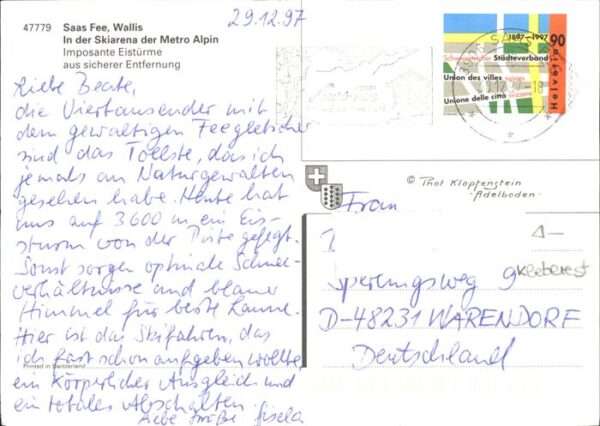 29.12.97
47779 Saas Fee, Wallis
In der Skiarena der Metro Alpin
Imposante Eistürme
aus sicherer Entfernung
Liebe Beate,
die Viertausender mit
dem gewaltigen Feegletscher
sind das Tollste, das ich
jemals an Naturgewalten
gesehen habe. Heute hat
uns auf 3600 m ein Eis-
sturm von der Piste gefegt.
Sonst sorgen optimale Schnee-
verhältnisse und blauer
Himmel für beste Laune.
Hier ist das Skifahren, das
ich fast schon aufgeben wollte
ein körperlicher Ausgleich und
ein totales Abschalten.
Liebe Grüße Gisela
Printed in Switzerland
1897-1997
90
Schweizerischer Städteverband
Union des villes suisses
Unione delle città svizzere
Helvetia
© Phot Klopfenstein
Adelboden
Frau
Sperlingsweg 9
Kleberest
D-48231 WARENDORF
Deutschland